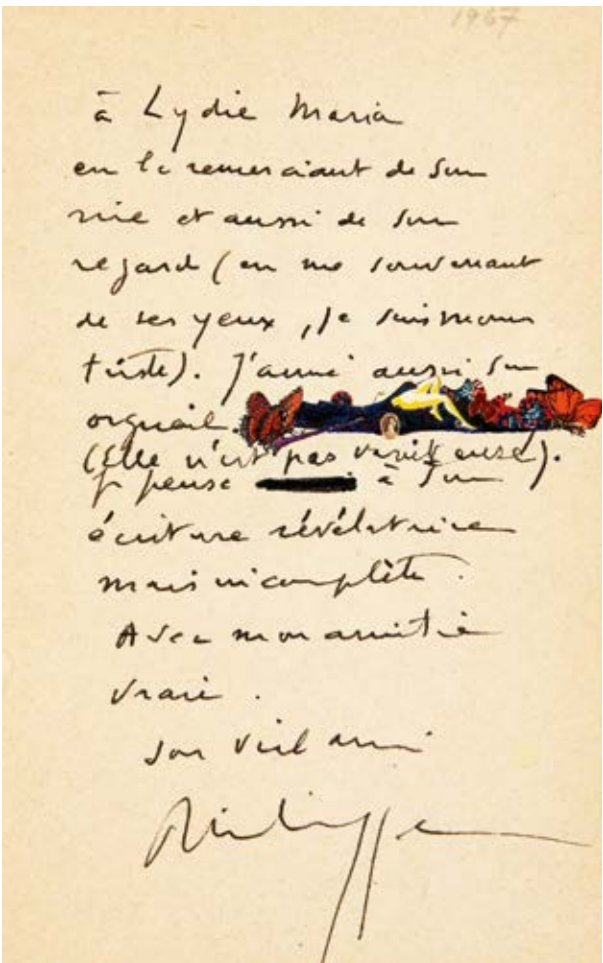 1967
à Lydie Maria
en la remerciant de son
rire et aussi de son
regard (en me souvenant
de ses yeux, je suis moins
triste). J'aime aussi son
orgueil.
(Elle n'est pas vaniteuse).
Je pense à son
écriture révélatrice
mais incomplète.
Avec mon amitié
vraie.
son vieil ami
Philippe